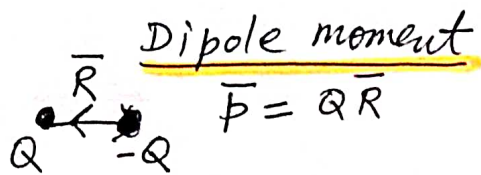 Dipole moment
R̅
p̅ = Q R̅
Q
-Q